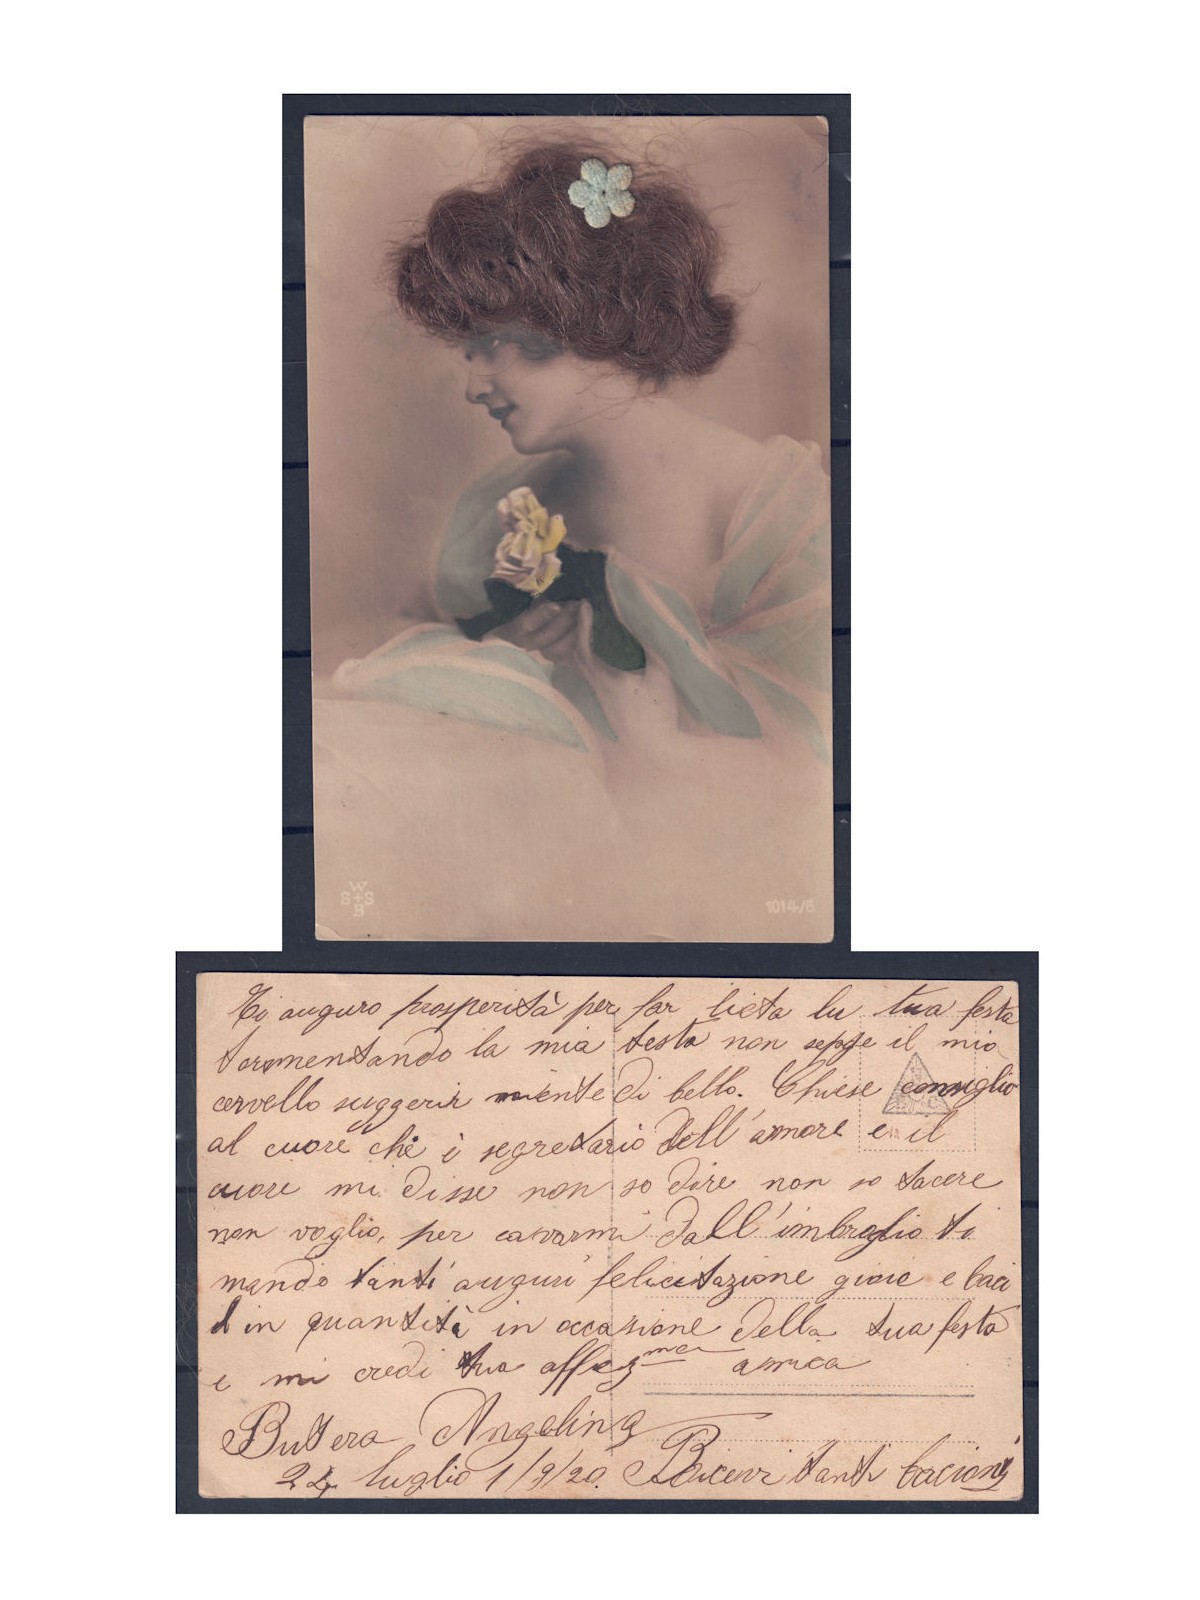 W
S+S
B
1014/6
Ti auguro prosperità per far lieta la tua festa
tormentando la mia testa non seppe il mio
cervello suggerir niente di bello. Chiese consiglio
al cuore che è segretario dell'amore e il
cuore mi disse non so dire non so tacere
non voglio, per cavarmi dall'imbroglio ti
mando tanti auguri felicitazione gioie e baci
in quantità in occasione della tua festa
e mi credi tua affezma amica
Buttera Angelina
24 luglio 1/9/20. Ricevi tanti bacioni